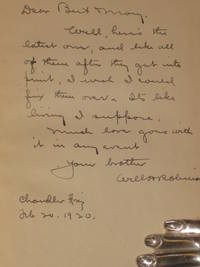 Dear Bert & Mary,
Well, here's the
latest one, and like all
of them after they get into
print, I wish I could
fix them over. Its like
living I suppose.
Much love goes with
it in any event
Your brother
Chandler
Feb 20. 1920.